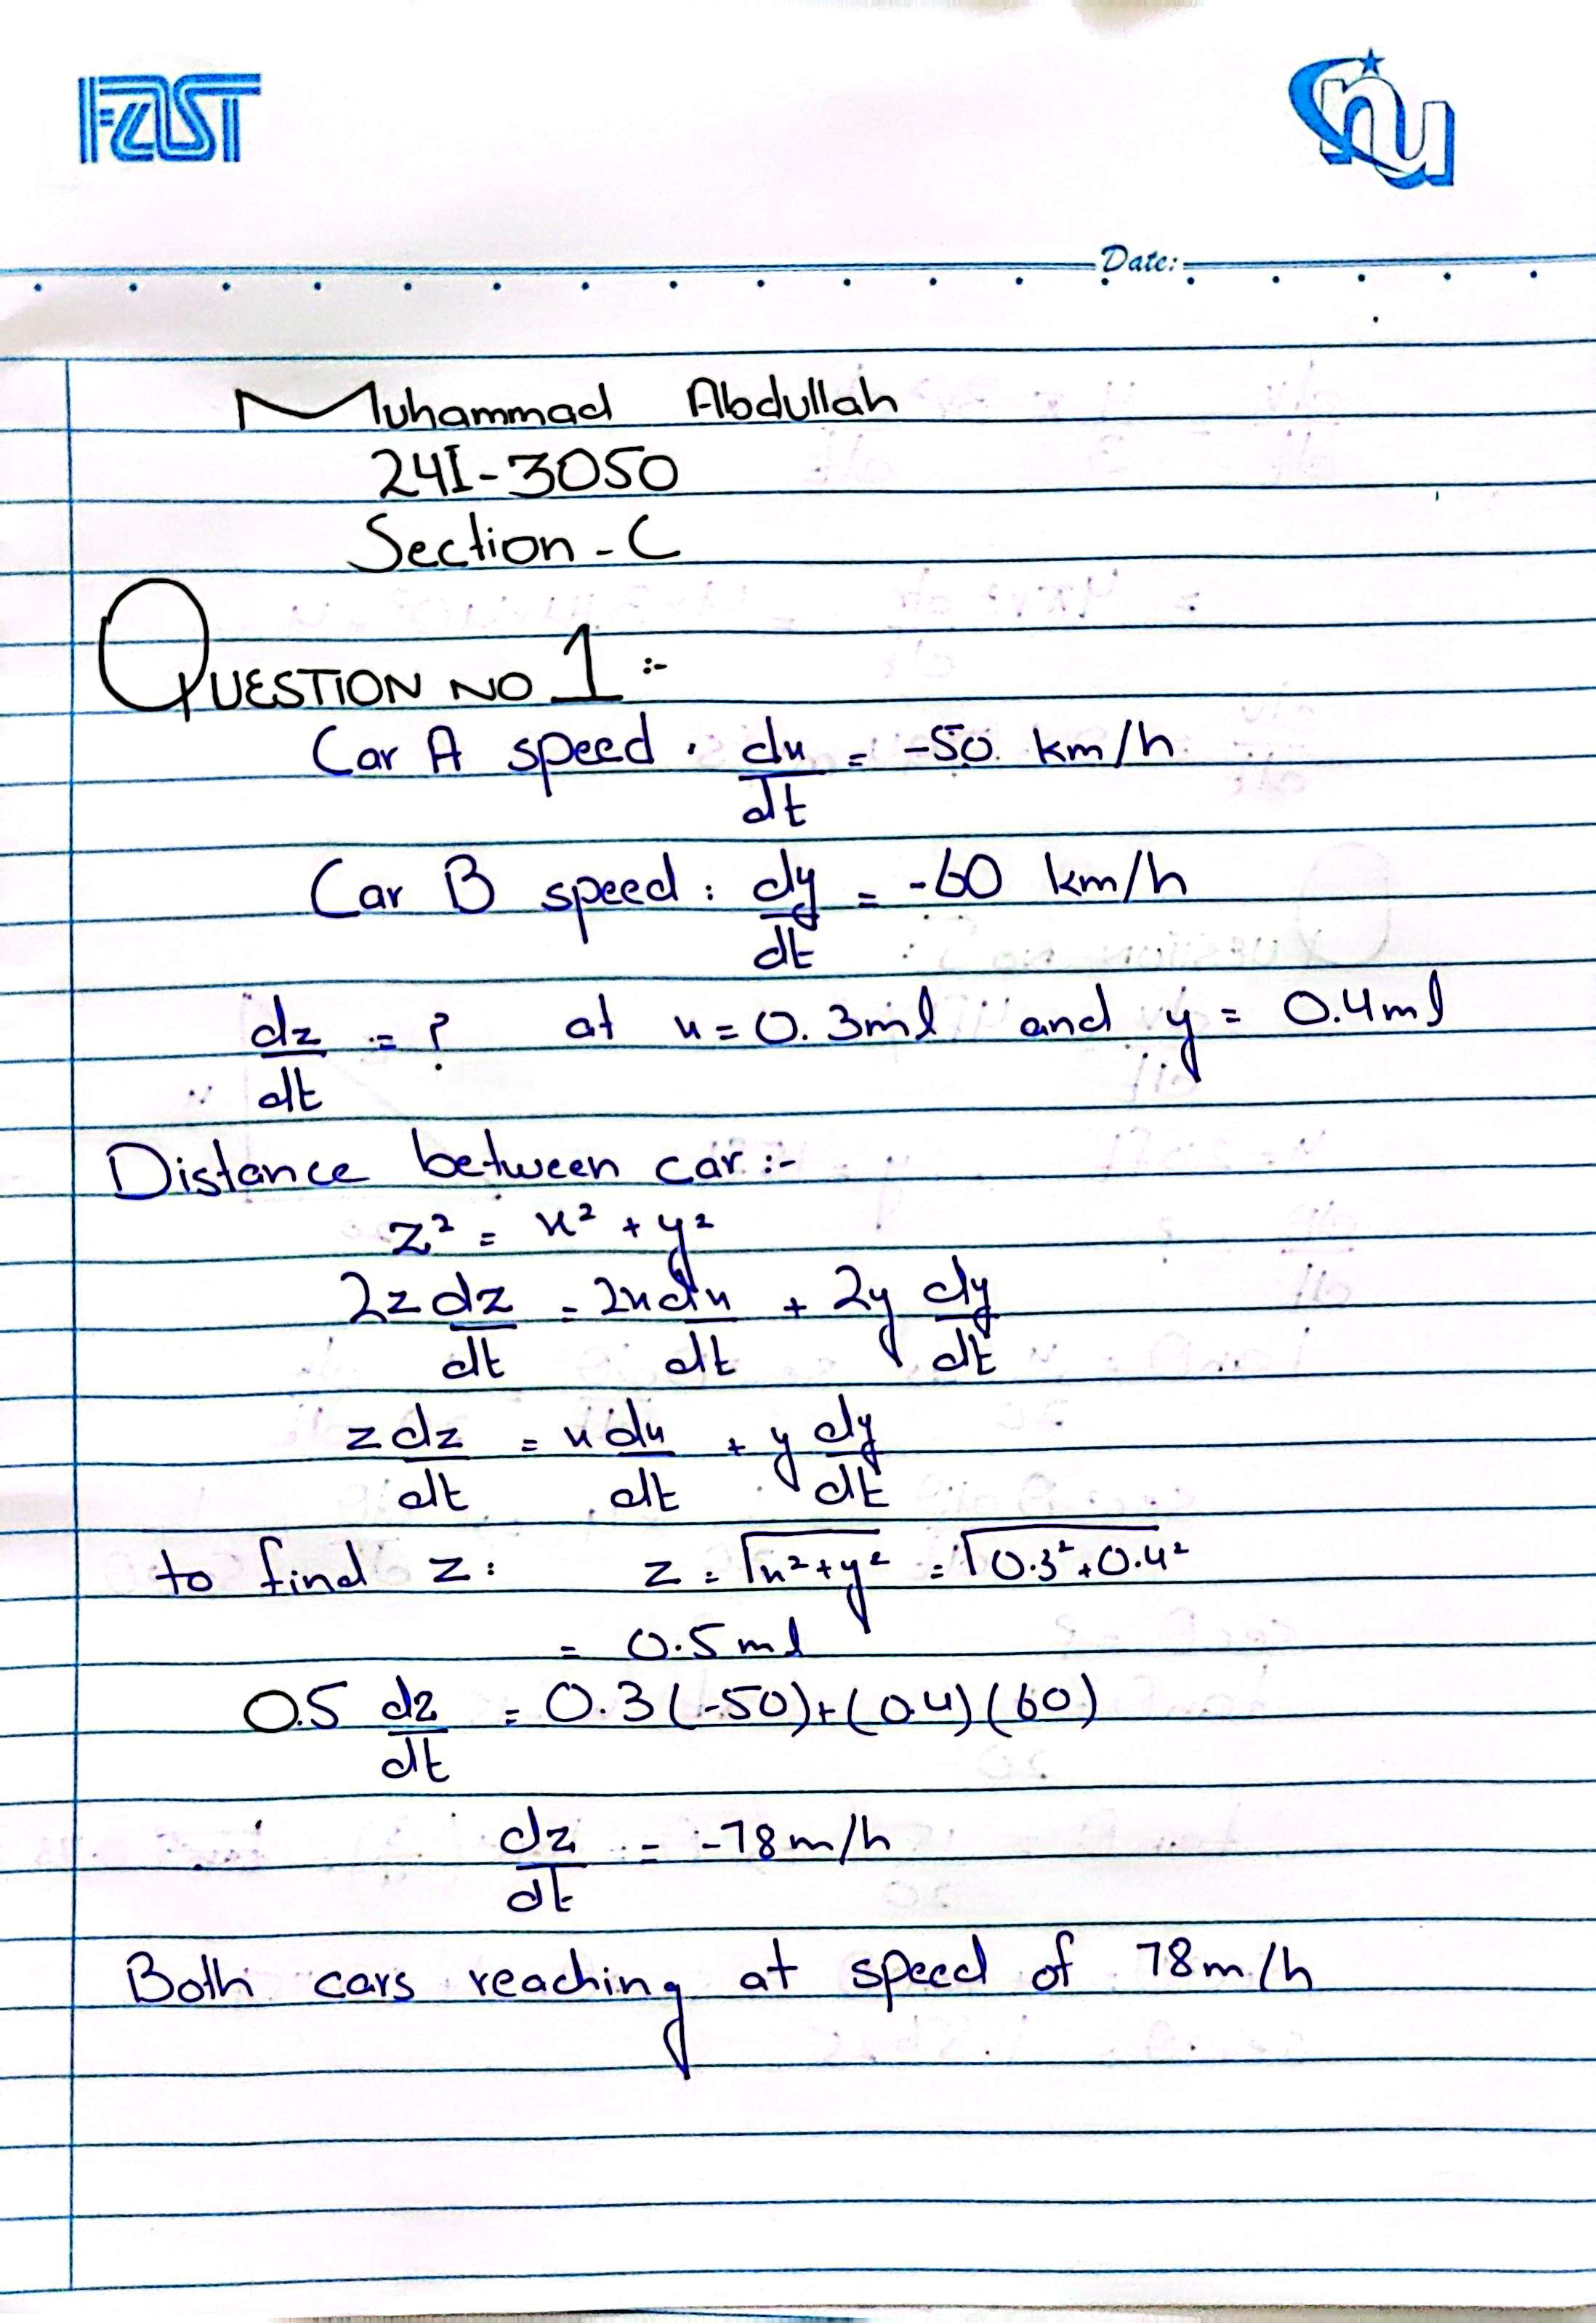 FAST nu
Date:
Muhammad Abdullah
24I-3050
Section - C
QUESTION NO 1 :-
Car A speed . dx/dt = -50. km/h
Car B speed : dy/dt = -60 km/h
dz/dt = ? at x = 0.3ml and y = 0.4ml
Distance between car :-
z² = x² + y²
2z dz/dt = 2x dx/dt + 2y dy/dt
z dz/dt = x dx/dt + y dy/dt
to find z : z = √x²+y² = √0.3²+0.4²
= 0.5ml
0.5 dz/dt = 0.3(-50)+(0.4)(60)
dz/dt = -78m/h
Both cars reaching at speed of 78m/h